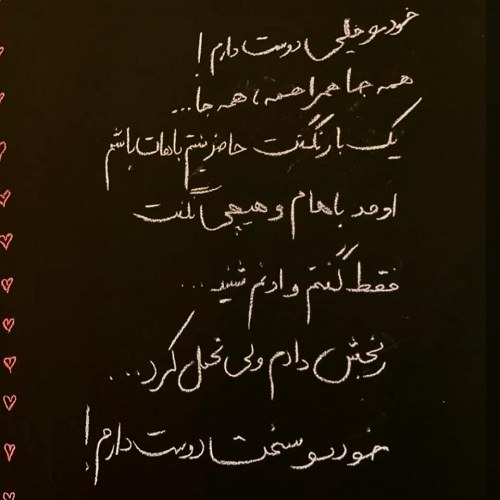 خودمو خیلی دوست دارم!
همه جا همرامه، همه جا...
یک بار نگفت حاضر نیستم باهات باشم
اومد باهام و هیچی نگفت
فقط گفتم و اونم شنید...
رنجش دادم ولی تحمل کرد...
خودمو سخت دوست دارم!